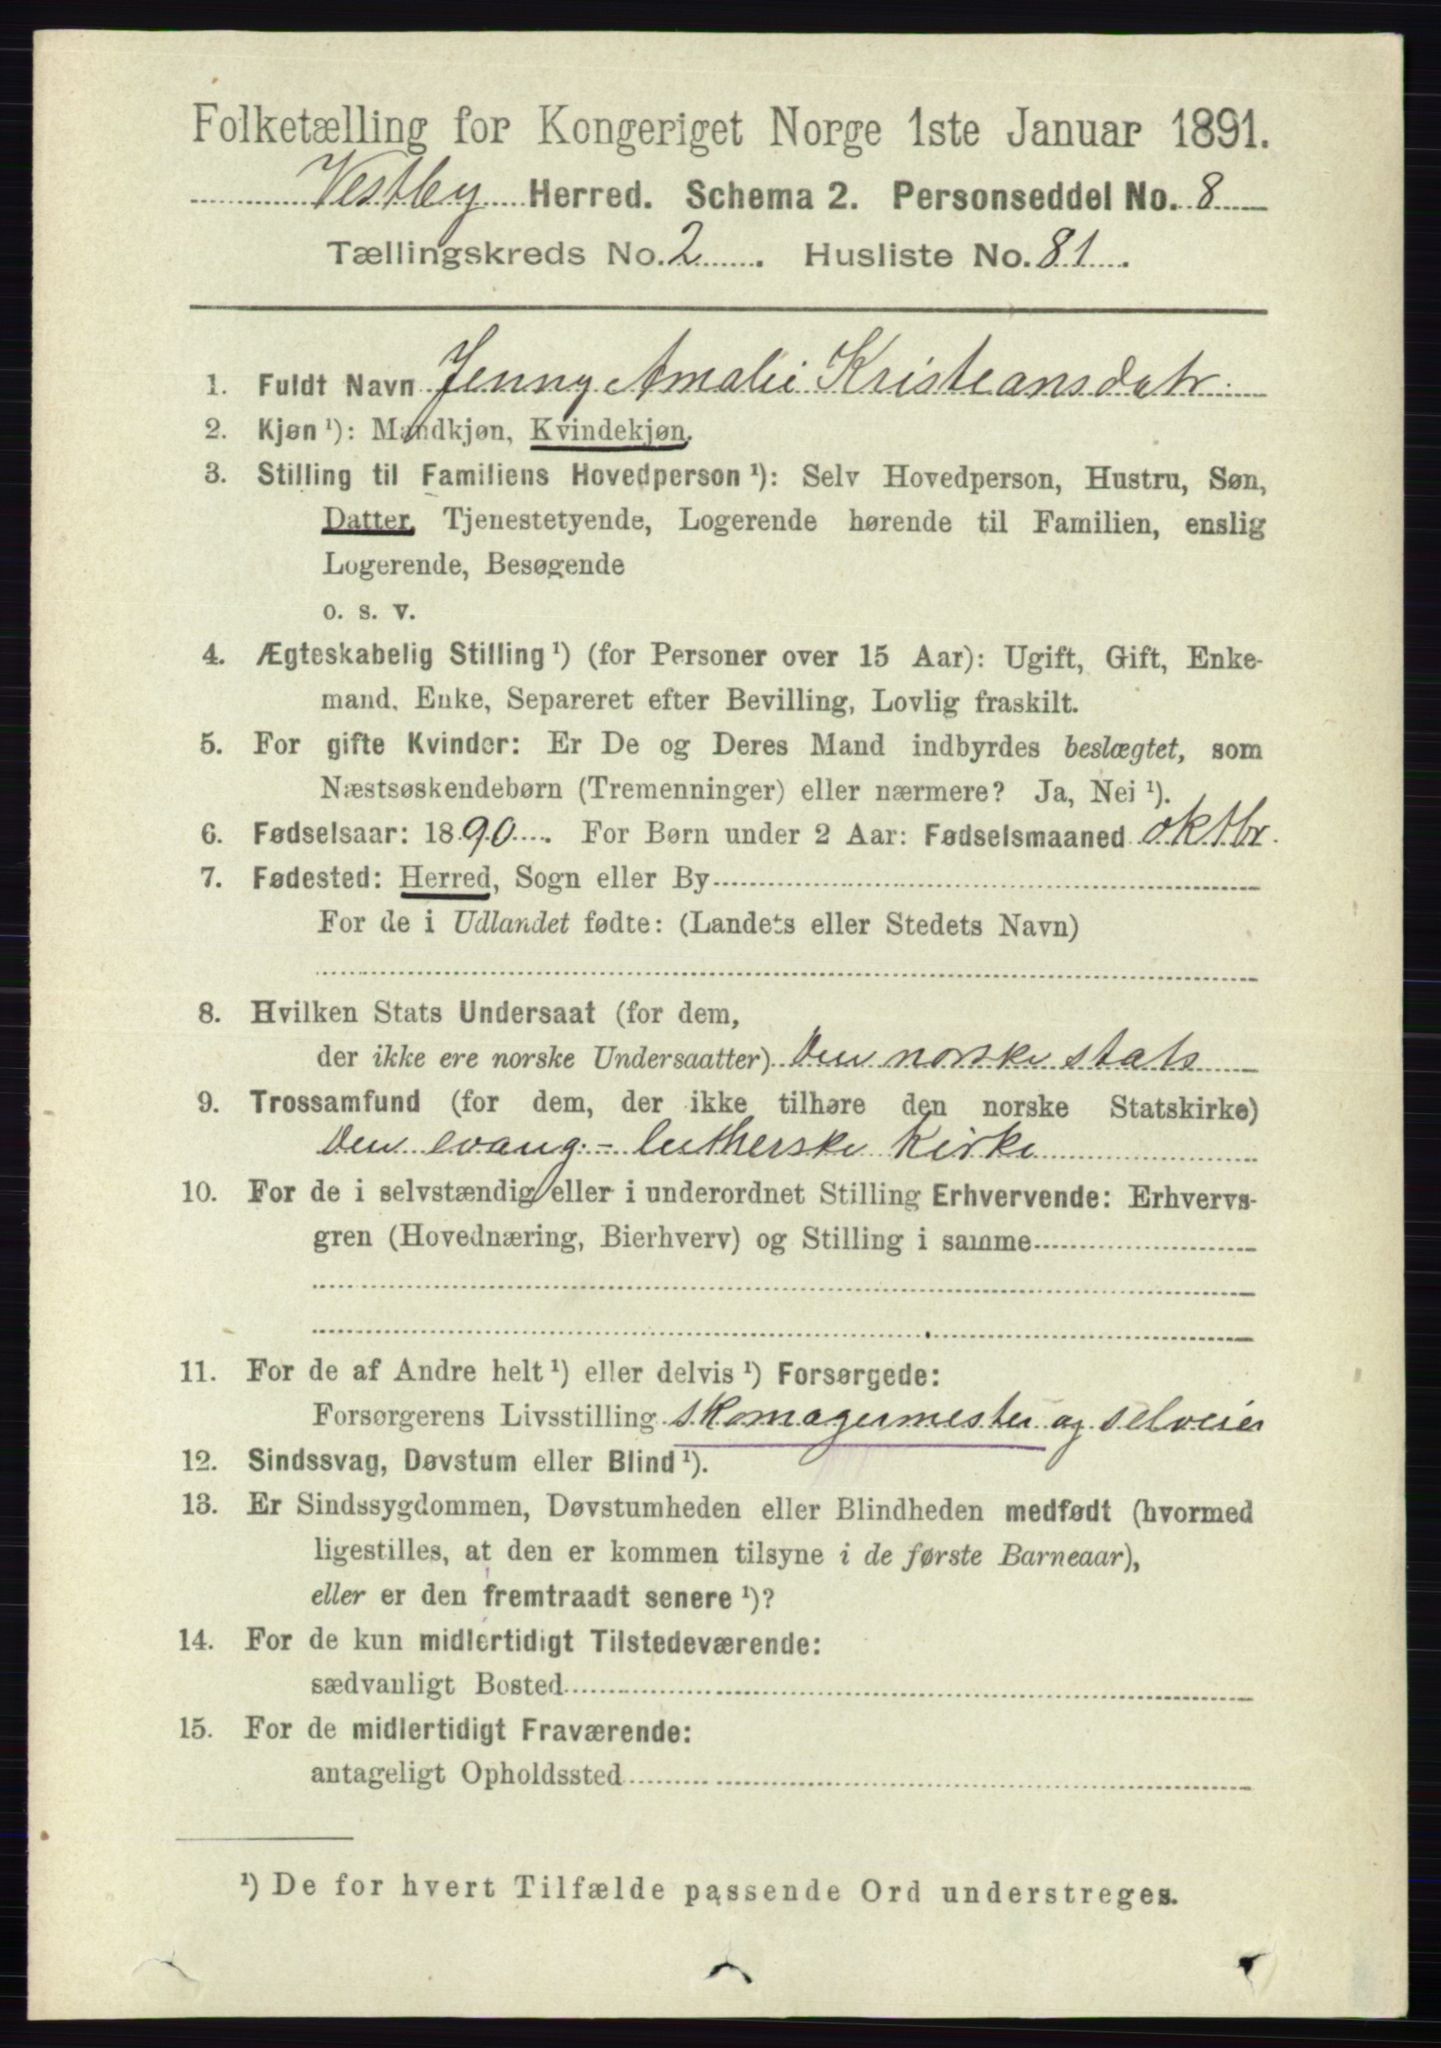 Folketælling for Kongeriget Norge 1ste Januar 1891.
Vestby Herred. Schema 2. Personseddel No. 8
Tællingskreds No. 2. Husliste No. 81.
1. Fuldt Navn Jenny Amalie Kristeansdatr.
2. Kjøn¹): Mandkjøn, Kvindekjøn.
3. Stilling til Familiens Hovedperson¹): Selv Hovedperson, Hustru, Søn,
Datter, Tjenestetyende, Logerende hørende til Familien, enslig
Logerende, Besøgende
o. s. v.
4. Ægteskabelig Stilling¹) (for Personer over 15 Aar): Ugift, Gift, Enke-
mand, Enke, Separeret efter Bevilling, Lovlig fraskilt.
5. For gifte Kvinder: Er De og Deres Mand indbyrdes beslægtet, som
Næstsøskendebørn (Tremenninger) eller nærmere? Ja, Nei¹).
6. Fødselsaar: 1890. For Børn under 2 Aar: Fødselsmaaned oktbr.
7. Fødested: Herred, Sogn eller By
For de i Udlandet fødte: (Landets eller Stedets Navn)
8. Hvilken Stats Undersaat (for dem,
der ikke ere norske Undersaatter) Den norske stats
9. Trossamfund (for dem, der ikke tilhøre den norske Statskirke)
Den evang.-lutherske Kirke
10. For de i selvstændig eller i underordnet Stilling Erhvervende: Erhvervs-
gren (Hovednæring, Bierhverv) og Stilling i samme
11. For de af Andre helt¹) eller delvis¹) Forsørgede:
Forsørgerens Livsstilling skomagermester og selveier
12. Sindssvag, Døvstum eller Blind¹).
13. Er Sindssygdommen, Døvstumheden eller Blindheden medfødt (hvormed
ligestilles, at den er kommen tilsyne i de første Barneaar),
eller er den fremtraadt senere¹)?
14. For de kun midlertidigt Tilstedeværende:
sædvanligt Bosted
15. For de midlertidigt Fraværende:
antageligt Opholdssted
¹) De for hvert Tilfælde passende Ord understreges.